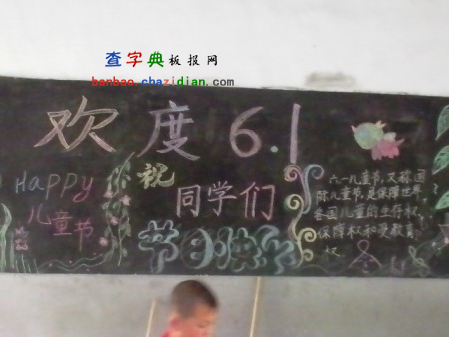 查字典板报网
banbao.chazidian.com
欢度6.1
Happy
儿童节
祝
同学们
节日快乐
六一儿童节,又称国
际儿童节,是保障世界
各国儿童的生存权、
保障权和受教育
权